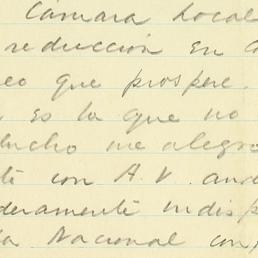 Cámara Local
reducción en
eo que prospere.
es la que no
ucho me alegro
te con A. V. and
deramente indisp
la Nacional con